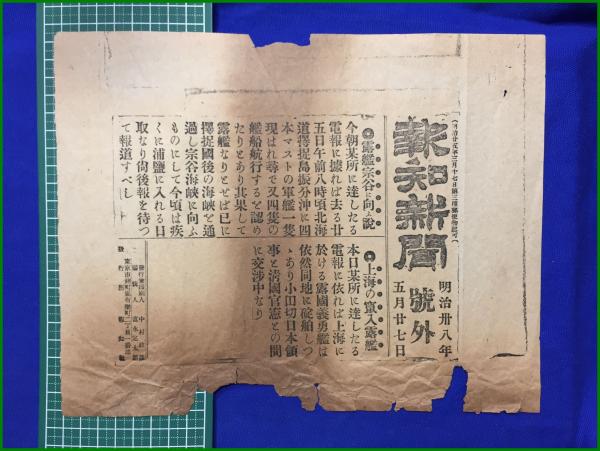 報知新聞
號外
明治卅八年
五月廿七日
●露艦宗谷に向ふ説
今朝某所に達したる
電報に據れば去る廿
五日午前八時頃北海
道擇捉島振分沖に四
本マストの軍艦一隻
現はれ尋で又四隻の
艦船航行するを認め
たりとあり其果して
露艦なりとせば已に
擇捉國後の海峡を通
過し宗谷海峡に向ふ
ものにして今頃は疾
くに浦鹽に入れる日
取なり尙後報を待つ
て報道すべし
●上海の竄入露艦
本日某所に達したる
電報に依れば上海に
於ける露國義勇艦は
依然同地に碇舶しつ
ゝあり小田切日本領
事と淸國官憲との間
に交渉中なり